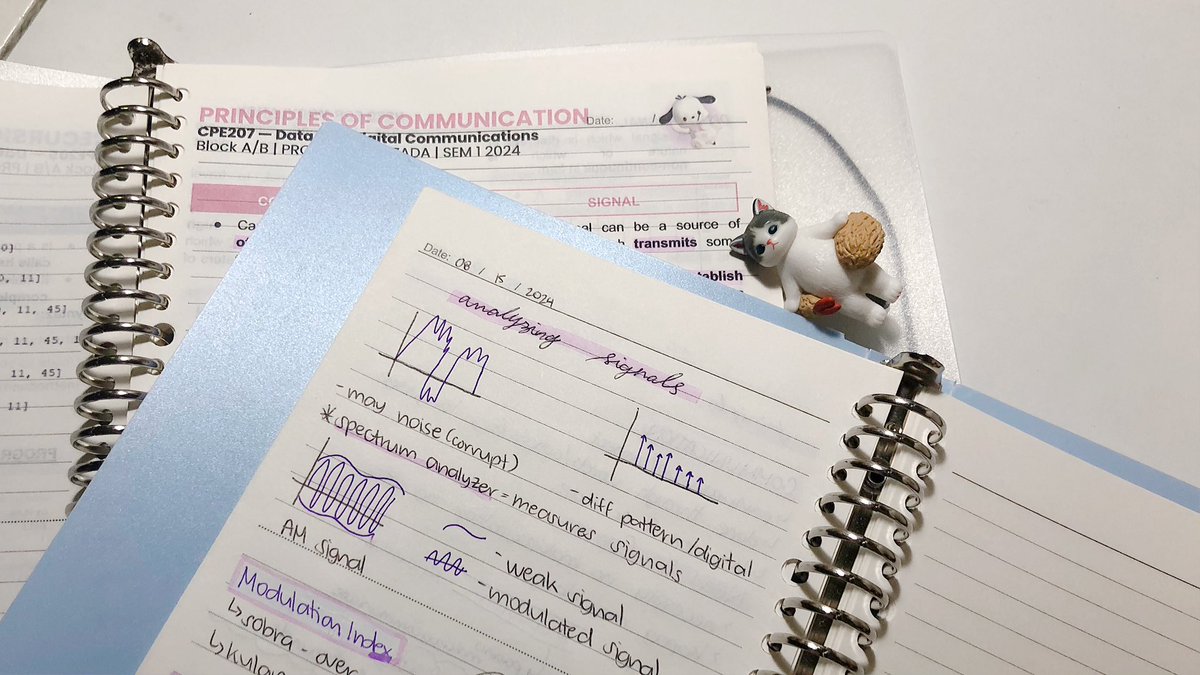 PRINCIPLES OF COMMUNICATION
Date: /
CPE207 — Data Digital Communications
Block A/B | SEM 1 2024
SIGNAL
can be a source of
transmits
0]
11]
11, 45]
11, 45,
11, 45]
11]
Date: 08 / 15 / 2024
analyzing signals
- may noise (corrupt)
- diff pattern/digital
*spectrum analyzer = measures signals
- weak signal
AM signal
- modulated signal
Modulation Index
↳ sobra - over